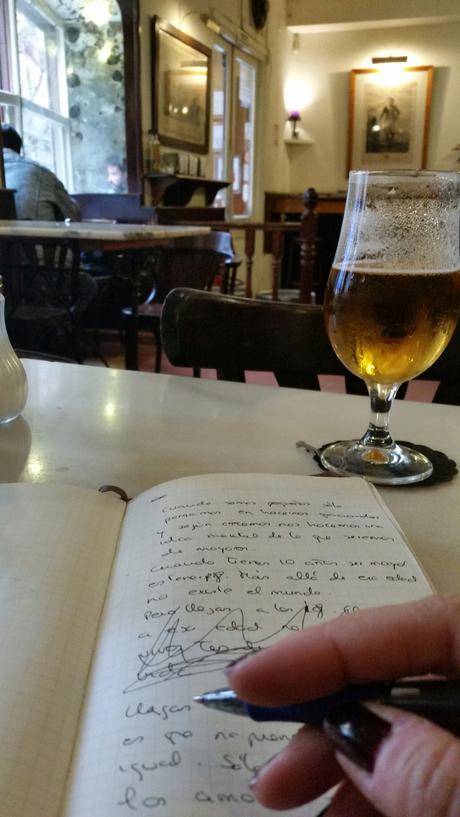 Cuando somos pequeños sólo
pensamos en hacernos grandes
y según crecemos nos hacemos una
idea mental de lo que seremos
de mayores.
Cuando tienes 10 años ser mayor
es tener 18. Más allá de esa edad
no existe el mundo.
Pero llegas a los 18.
a esa edad no
Llegas
es que no
igual. Sólo
los